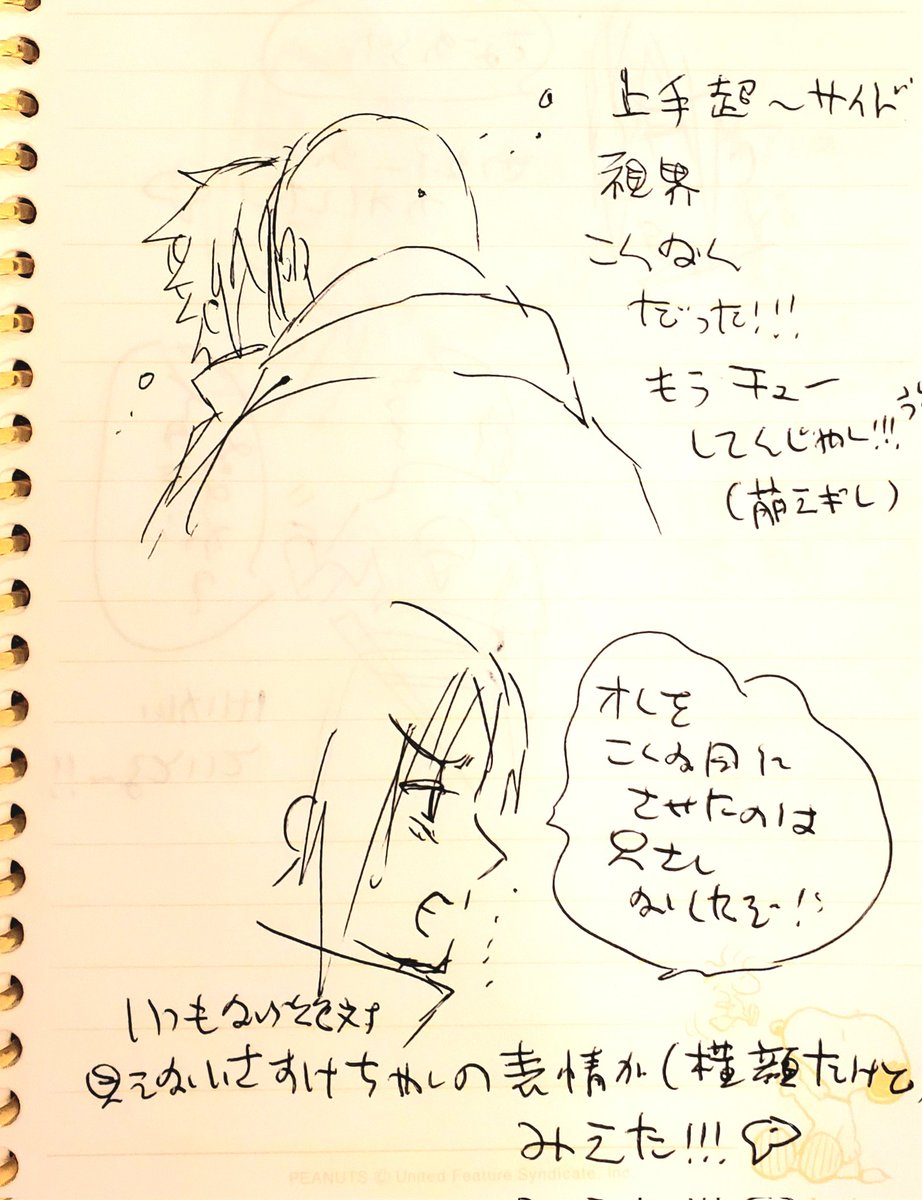 上手超〜サイド
視界
こんなん
だった!!!
もうチュー
してんじゃん!!!
(萌えギレ)
オレを
こんな目に
させたのは
兄さん
なんだぞー!?
いつもなら絶対
見えないさすけちゃんの表情が(横顔だけど)
みえた!!!
PEANUTS © United Feature Syndicate, Inc